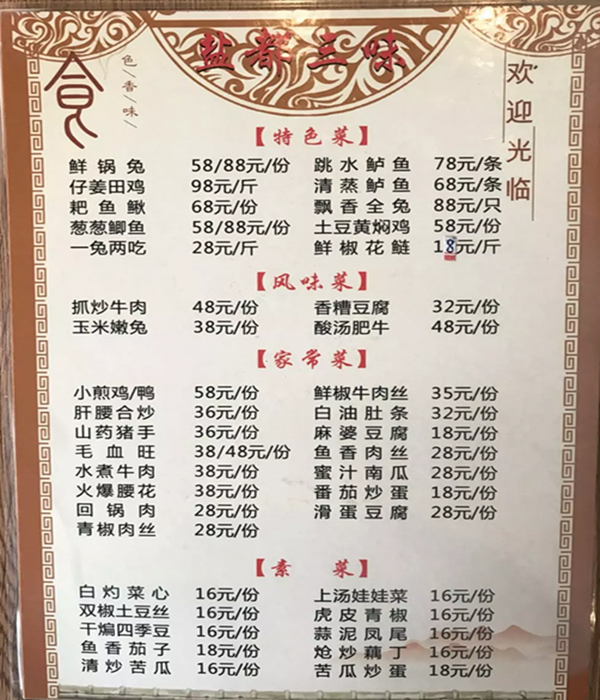 盐都三味
食
色/香/味/
欢迎光临
【特色菜】
鲜锅兔 58/88元/份 跳水鲈鱼 78元/条
仔姜田鸡 98元/斤 清蒸鲈鱼 68元/条
耙鱼鳅 68元/份 飘香全兔 88元/只
葱葱鲫鱼 58/88元/份 土豆黄焖鸡 58元/份
一兔两吃 28元/斤 鲜椒花鲢 18元/斤
【风味菜】
抓炒牛肉 48元/份 香糟豆腐 32元/份
玉米嫩兔 38元/份 酸汤肥牛 48元/份
【家常菜】
小煎鸡/鸭 58元/份 鲜椒牛肉丝 35元/份
肝腰合炒 36元/份 白油肚条 32元/份
山药猪手 36元/份 麻婆豆腐 18元/份
毛血旺 38/48元/份 鱼香肉丝 28元/份
水煮牛肉 38元/份 蜜汁南瓜 28元/份
火爆腰花 38元/份 番茄炒蛋 18元/份
回锅肉 28元/份 滑蛋豆腐 28元/份
青椒肉丝 28元/份
【素 菜】
白灼菜心 16元/份 上汤娃娃菜 16元/份
双椒土豆丝 16元/份 虎皮青椒 16元/份
干煸四季豆 16元/份 蒜泥凤尾 16元/份
鱼香茄子 18元/份 炝炒藕丁 16元/份
清炒苦瓜 16元/份 苦瓜炒蛋 18元/份